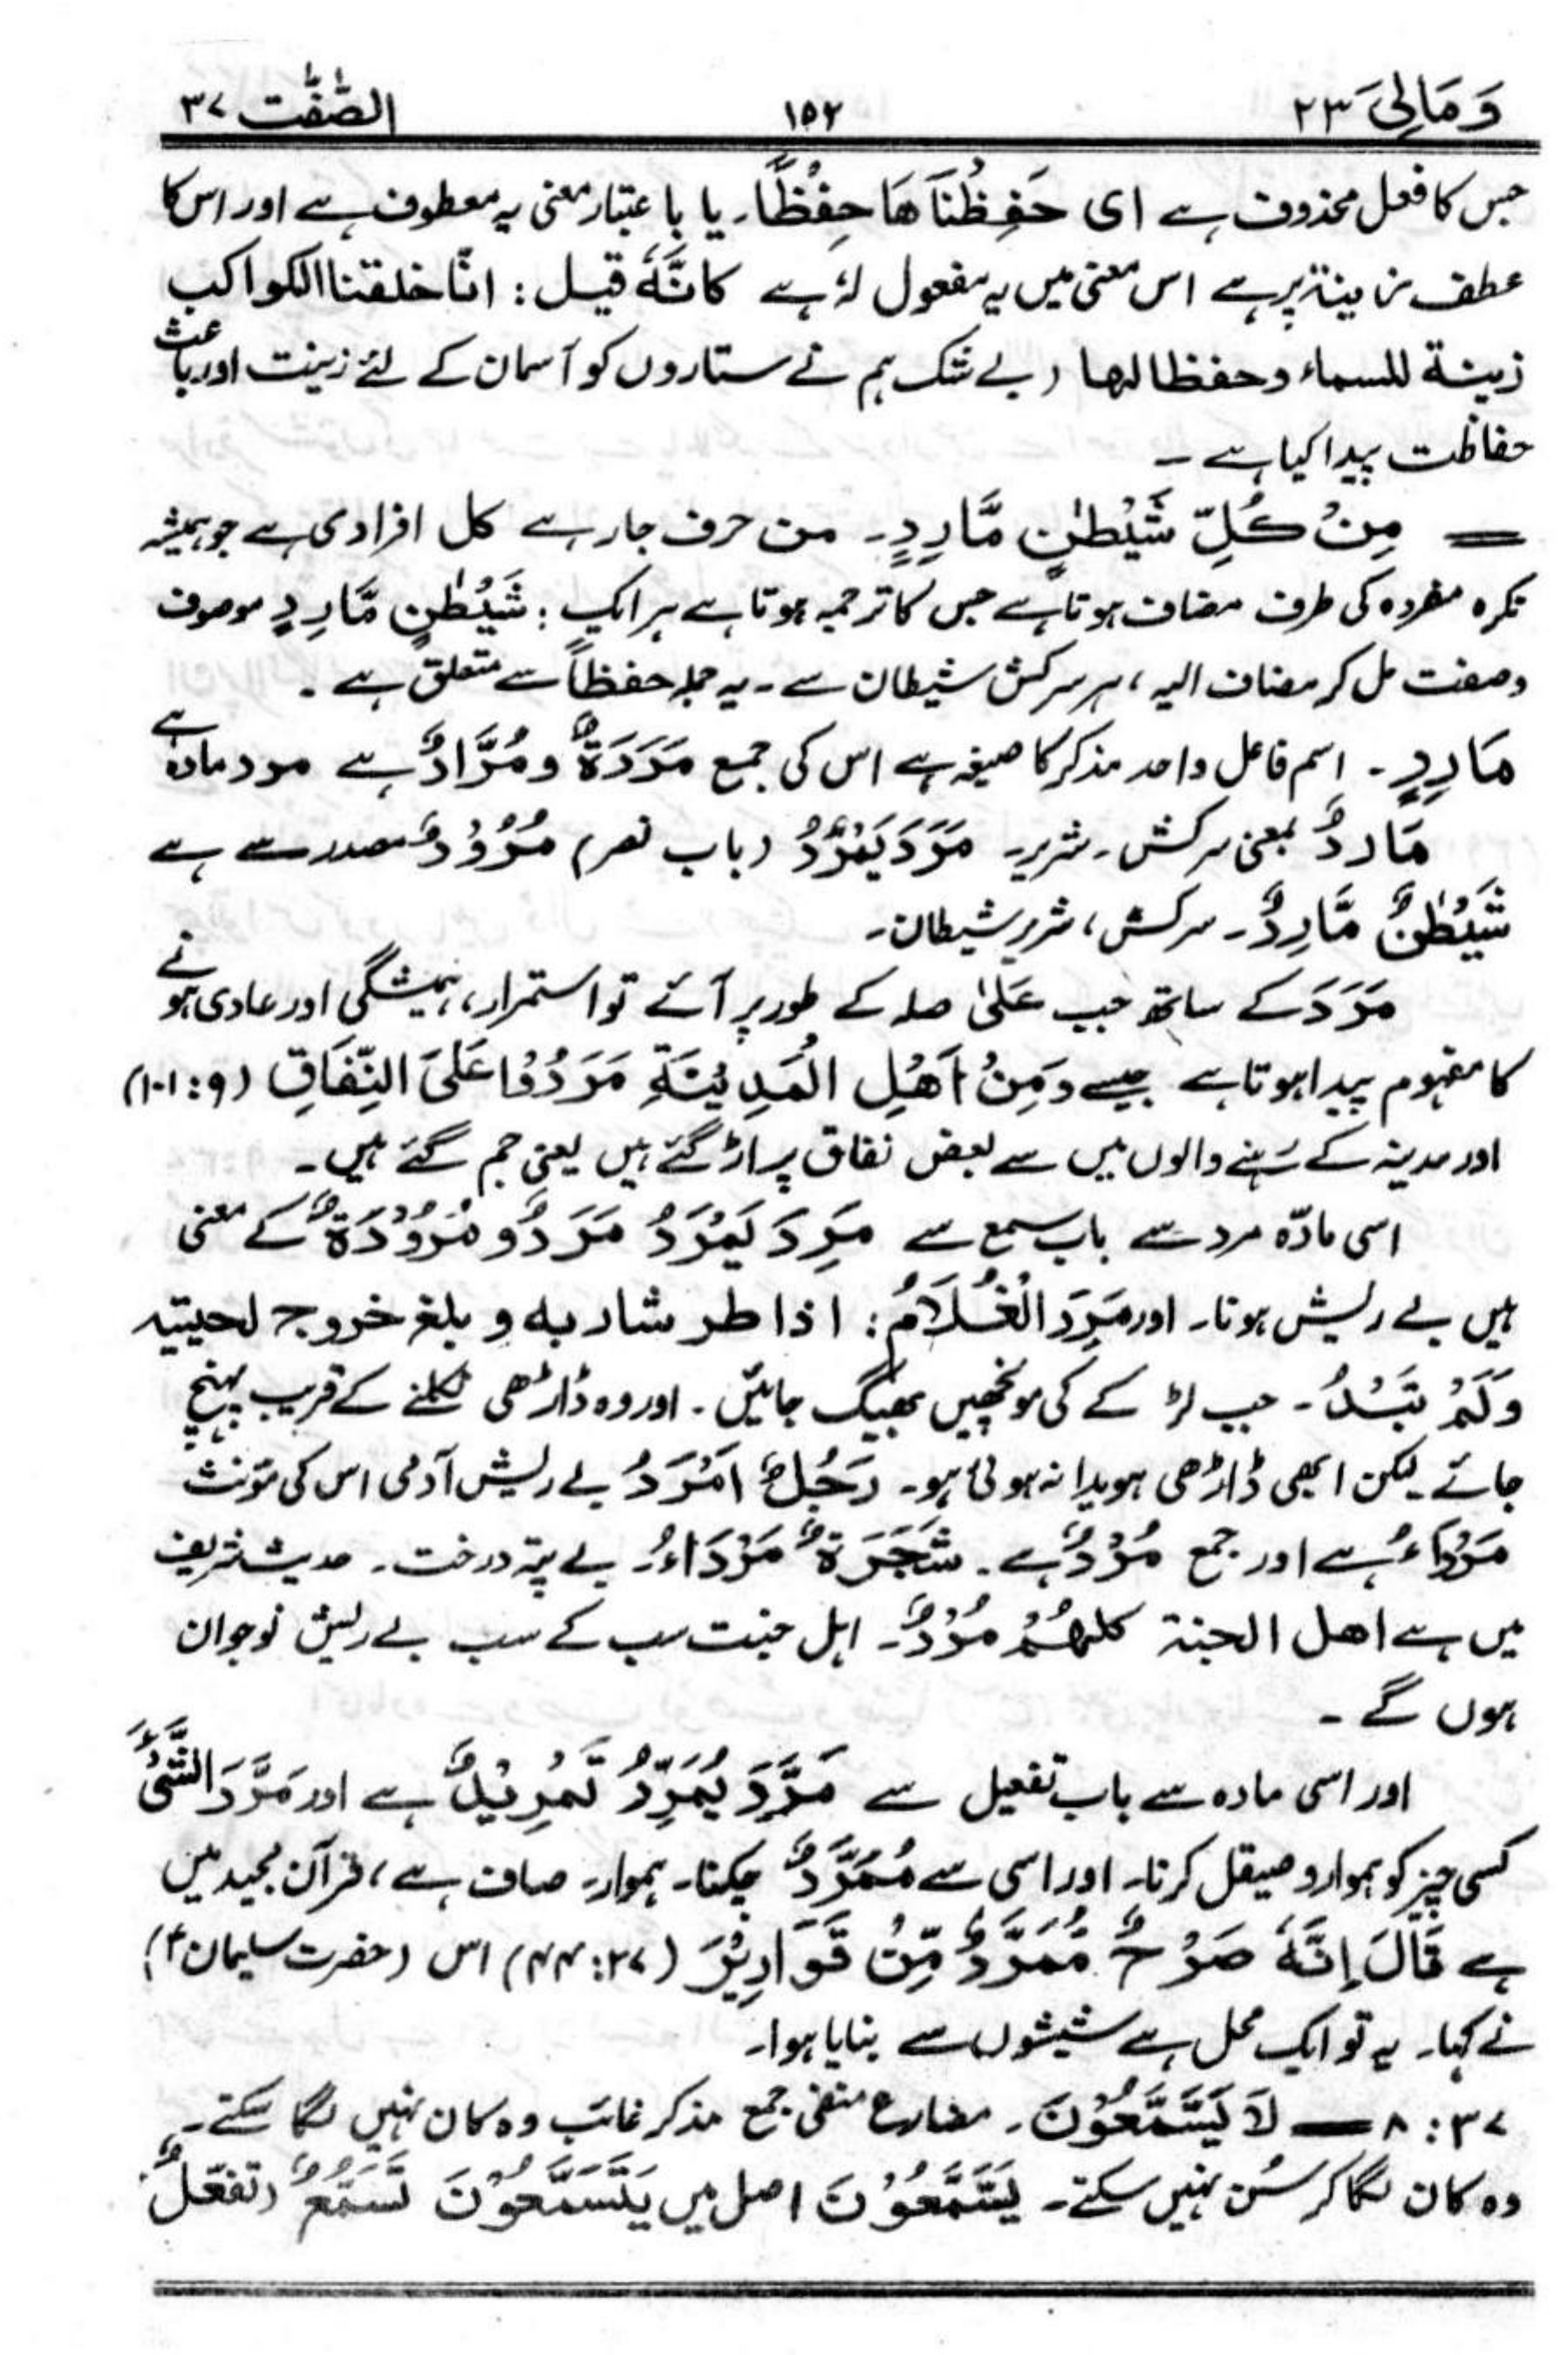 وَمَالِیَ ۲۳ ۱۵۲ الصّٰفّٰت ۳۷
جس کا فعل محذوف ہے ای حَفِظْنَاهَا حِفْظًا۔ یا باعتبار معنی یہ معطوف ہے اور اس کا
عطف زینۃ پر ہے اس معنی میں یہ مفعول لہٗ ہے کانّہٗ قیل: انّا خلقنا الکواکب
زینة للسماء وحفظا لہا (بے شک ہم نے ستاروں کو آسمان کے لئے زینت اور باعث
حفاظت پیدا کیا ہے ۔
= مِنْ كُلِّ شَيْطٰنٍ مَّارِدٍ۔ من حرف جار ہے کل افرادی ہے جو ہمیشہ
نکرہ مفردہ کی طرف مضاف ہوتا ہے جس کا ترجمہ ہوتا ہے ہر ایک: شَيْطٰنٍ مَّارِدٍ موصوف
وصفت مل کر مضاف الیہ، ہر سرکش شیطان سے ۔ یہ جملہ حفظاً سے متعلق ہے ۔
مَارِدٍ ۔ اسم فاعل واحد مذکر کا صیغہ ہے اس کی جمع مَرَدَةٌ و مُرَّادٌ ہے مرد مادہ ہے
مَارِدٌ بمعنی سرکش ۔ شریر ۔ مَرَدَ يَمْرُدُ (باب نصر) مُرُوْدٌ مصدر سے ہے
شَيْطٰنٌ مَّارِدٌ۔ سرکش، شریر شیطان۔
مَرَدَ کے ساتھ جب عَلیٰ صلہ کے طور پر آئے تو استمرار، ہمیشگی اور عادی ہونے
کا مفہوم پیدا ہوتا ہے جیسے وَمِنْ اَهْلِ الْمَدِيْنَةِ مَرَدُوْا عَلَى النِّفَاقِ (۹:۱۰۱)
اور مدینہ کے رہنے والوں میں سے بعض نفاق پر اڑ گئے ہیں یعنی جم گئے ہیں ۔
اسی مادّہ مرد سے باب سمع سے مَرِدَ يَمْرَدُ مَرَدٌ و مُرُوْدَةٌ کے معنی
ہیں بے ریش ہونا۔ اور مَرِدَ الْغُلَامُ: اذا طر شاربہ و بلغ خروج لحیتہ
وَلَمْ تَبْدُ ۔ جب لڑکے کی مونچھیں بھیگ جائیں ۔ اور وہ ڈاڑھی نکلنے کے قریب پہنچ
جائے لیکن ابھی ڈاڑھی ہویدا نہ ہوئی ہو۔ رَجُلٌ اَمْرَدُ بے ریش آدمی اس کی مؤنث
مَرْدَاءُ ہے اور جمع مُرْدٌ ہے ۔ شَجَرَةٌ مَرْدَاءُ۔ بے پتہ درخت ۔ حدیث شریف
میں ہے اھل الجنۃ کلہُمْ مُرْدٌ۔ اہل جنت سب کے سب بے ریش نوجوان
ہوں گے ۔
اور اسی مادہ سے باب تفعیل سے مَرَّدَ يُمَرِّدُ تَمْرِيْدٌ ہے اور مَرَّدَ الشَّیْءَ
کسی چیز کو ہموار و صیقل کرنا۔ اور اسی سے مُمَرَّدٌ چکنا۔ ہموار۔ صاف ہے، قرآن مجید میں
ہے قَالَ اِنَّهٗ صَرْحٌ مُّمَرَّدٌ مِّنْ قَوَارِيْرَ (۲۷:۴۴) اس (حضرت سلیمان ؑ)
نے کہا۔ یہ تو ایک محل ہے شیشوں سے بنایا ہوا۔
۳۷: ۸ = لَا يَسَّمَّعُوْنَ ۔ مضارع منفی جمع مذکر غائب وہ کان نہیں لگا سکتے ۔
وہ کان لگا کر سُن نہیں سکتے ۔ يَسَّمَّعُوْنَ اصل میں يَتَسَمَّعُوْنَ تَسَمُّعٌ (تفعّلٌ